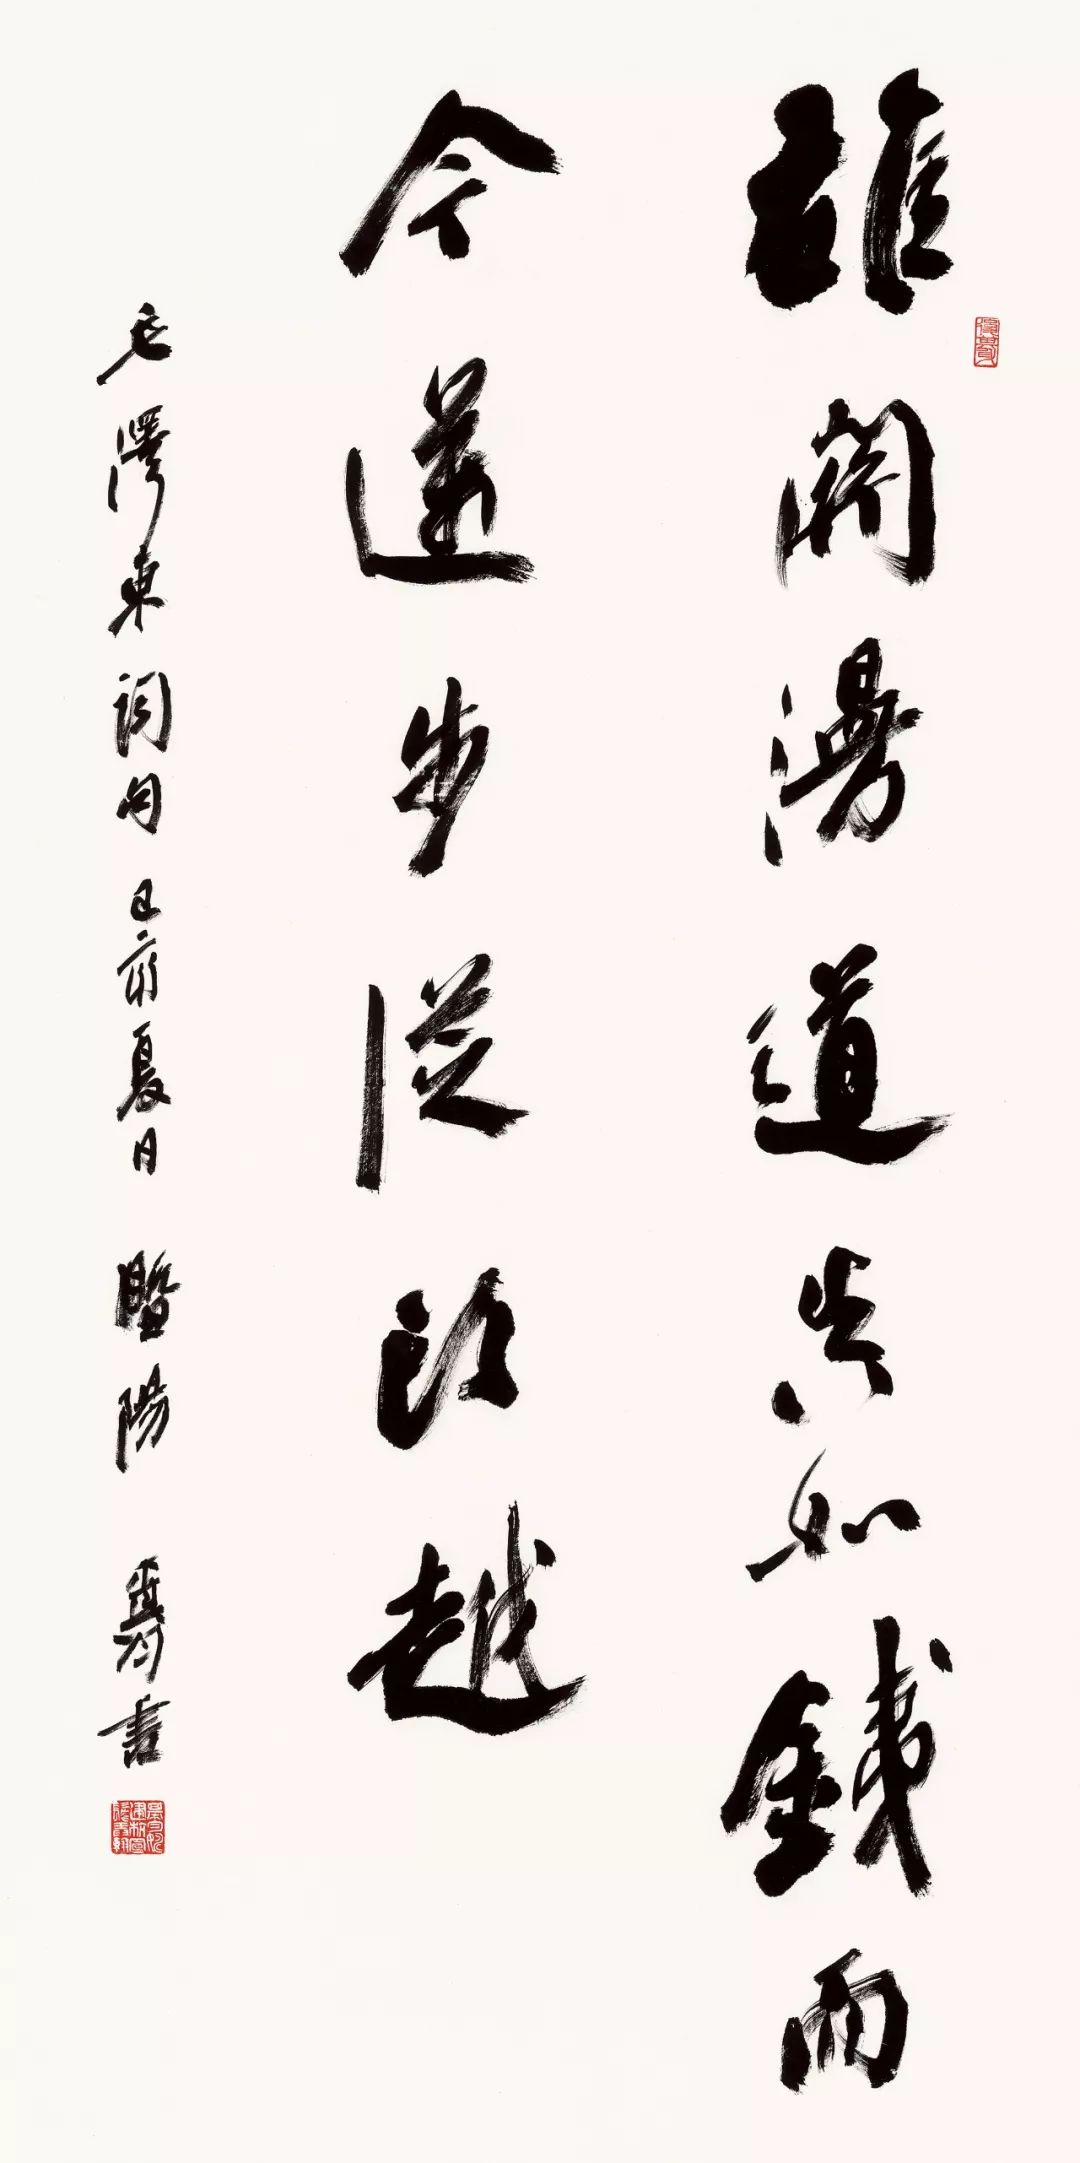 雄關漫道真如鐵而
今邁步從頭越
毛澤東詞句 己亥夏日 暨陽 書